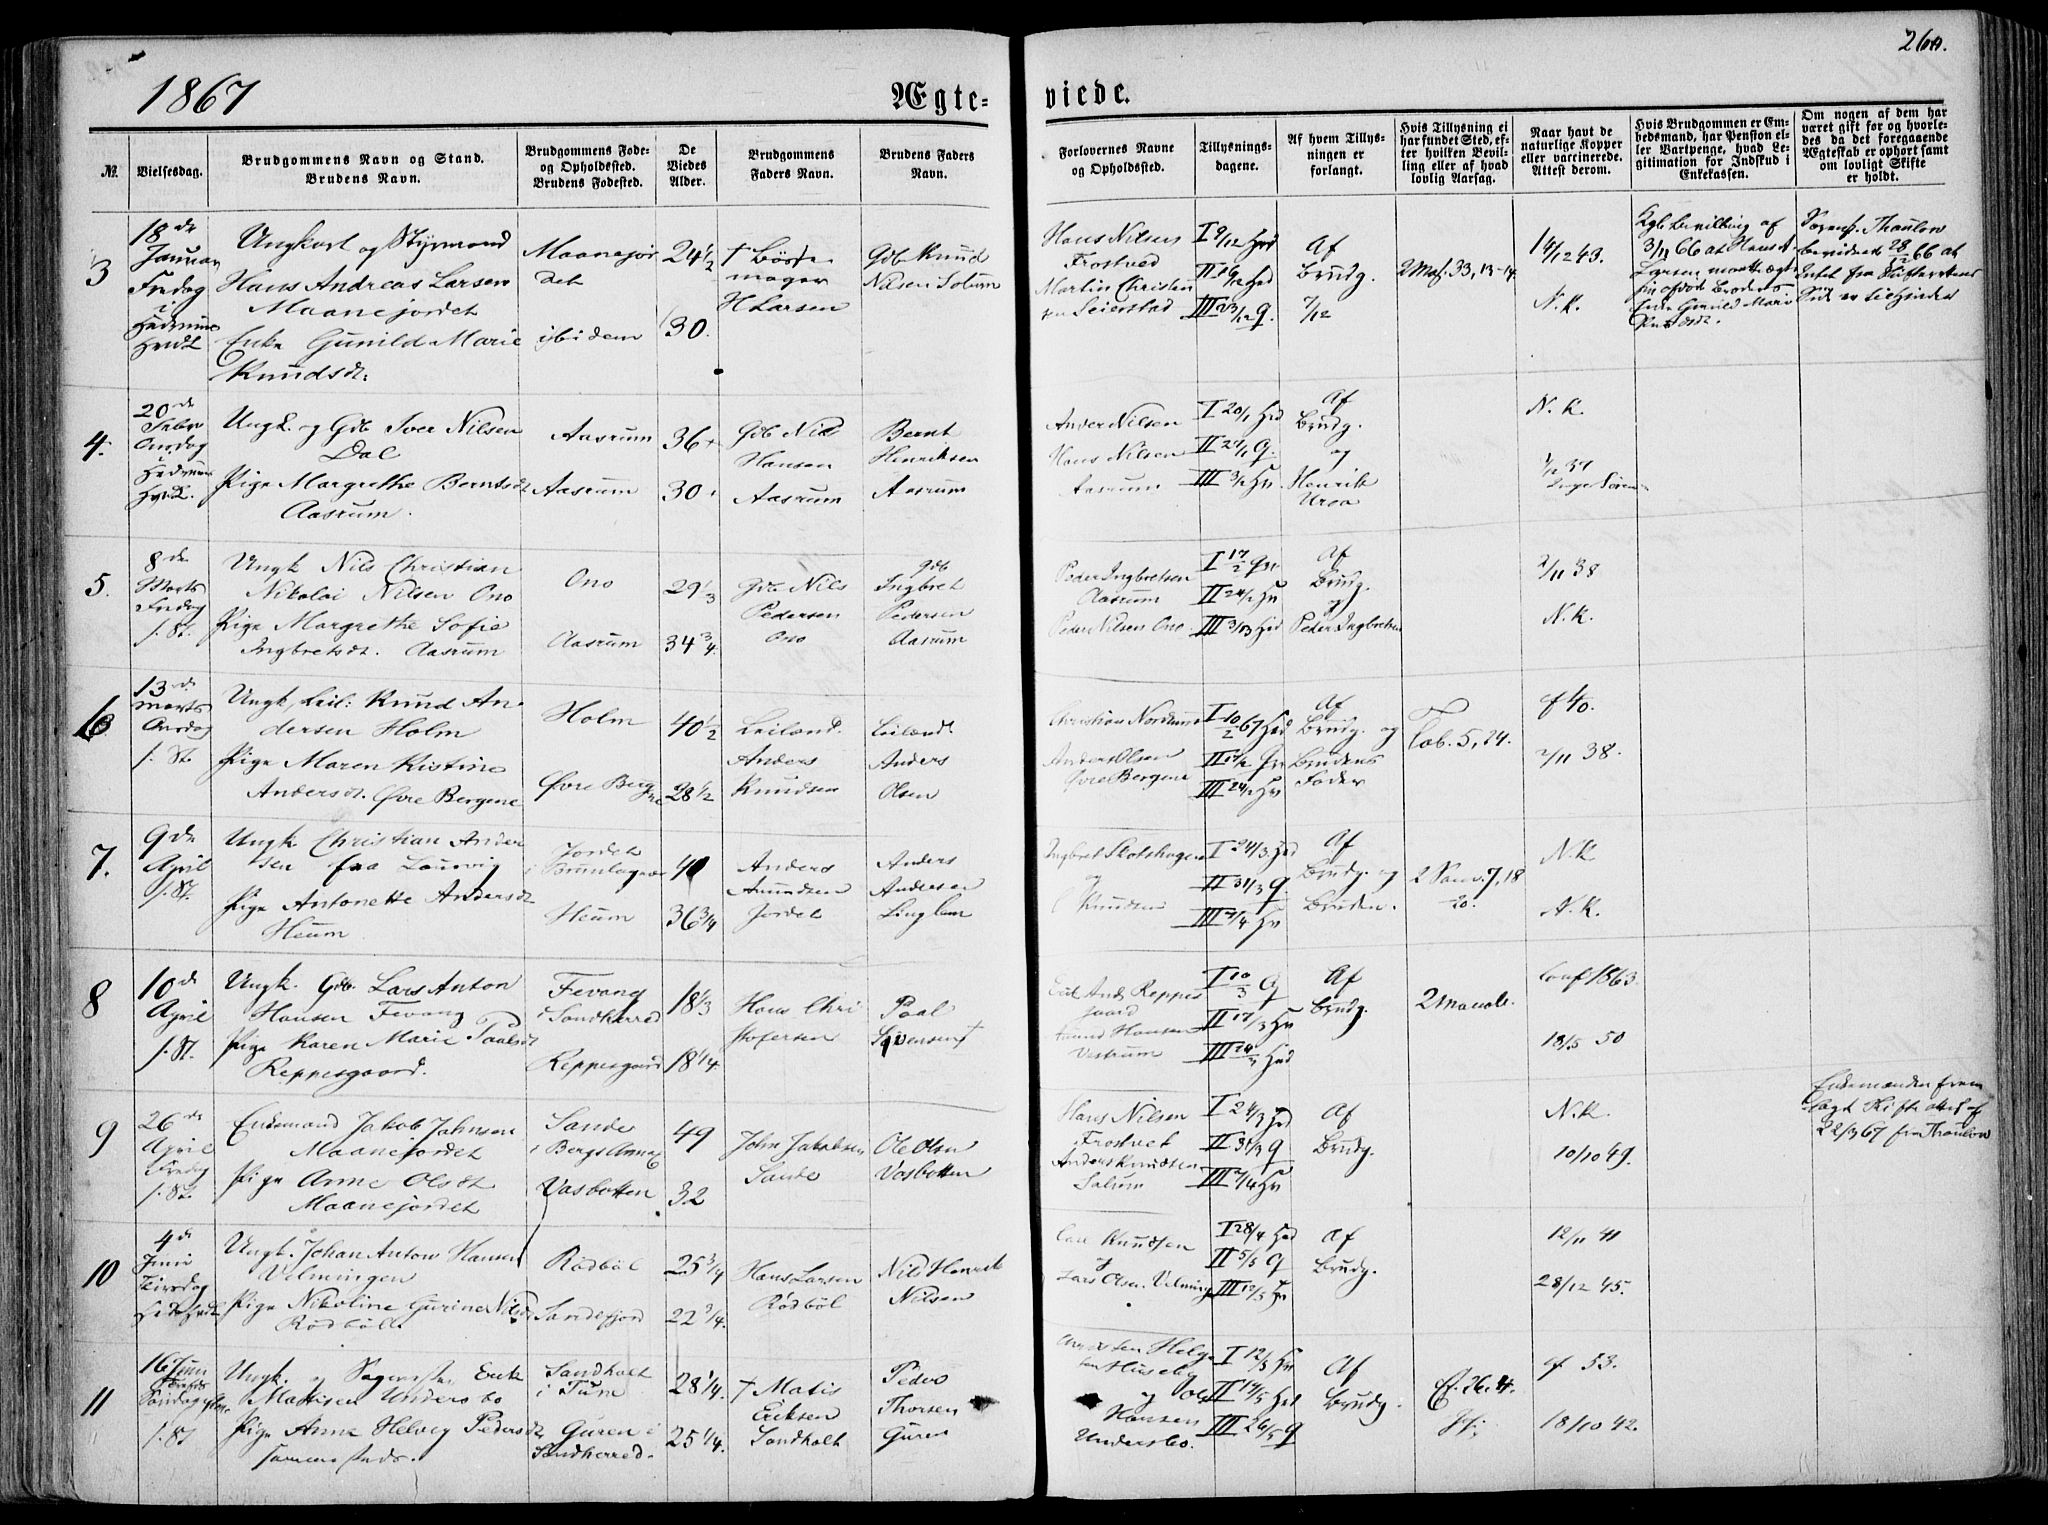 260.
1867
Ægte=
viede.
№.
Vielsesdag.
Brudgommens Navn og Stand.
Brudens Navn.
Brudgommens Føde-
og Opholdssted.
Brudens Fødested.
De
Viedes
Alder.
Brudgommens
Faders Navn.
Brudens Faders
Navn.
Forlovernes Navne
og Opholdssted.
Tillysnings-
dagene.
Af hvem Tillys-
ningen er
forlangt.
Hvis Tillysning ei
har fundet Sted, ef-
ter hvilken Bevil-
ling eller af hvad
lovlig Aarsag.
Naar havt de
naturlige Kopper
eller vaccinerede.
Attest derom.
Hvis Brudgommen er Em-
bedsmand, har Pension el-
ler Vartpenge, hvad Le-
gitimation for Indskud i
Enkekassen.
Om nogen af dem har
været gift før og hvorle-
des da det foregaaende
Ægteskab er ophørt samt
om lovligt Skifte
er holdt.
3
18de
Januar
Fredag
i
Ungkarl og Styrmand
Hans Andreas Larsen
Maanejordet
Enke Gunild Marie
Knudsdt.
Maanejor
det
ibidem
24 1/2
30.
H Larsen
Gdb Knud
Nilsen Solum
Hans Nilsen
Frostved
Martin Christen
sen Seierstad
I 9/12 Hed
II 16/12 Hed
III 23/12 Q.
Af
Brudg.
7/12
2 Mos. 33, 13-14
14/12 43.
N. K.
Kgl. Bevilling af
3/11 66 at Hans A.
Larsen maatte ægte
sin afdøde Broders
Enke Gunild Marie
Thaulow
4.
20de
Febr
Onsdag
Ungk. og Gdb Iver Nilsen
Dal
Pige Margrethe Berntsdt
Aasrum.
Aasrum
Aasrum
36
30
Gdb Nils
Hansen
Aasrum
Bernt
Henriksen
Aasrum
Anders Nilsen
Hans Nilsen
Aasrum
I 20/1 Hed
II 27/1 Q.
III 3/2 Hv
Af
Brudg.
og
Henrik
N. K.
5.
8de
Marts
Fredag
s. St.
Ungk Nils Christian
Nikolai Nilsen Ono
Pige Margrethe Sofie
Ingbretsdt. Aasrum
Ono
Aasrum
29 1/3
34 3/4.
Gdb Nils
Pedersen
Ono
Gdb
Ingbret
Pedersen
Aasrum
Peder Ingbretsen
Aasrum
Peder Nilsen Ono
I 17/2
II 24/2 Hv
III 3/3 Hed
Af
Brudg.
og
Peder Ingbretsen
2/11 38
N. K.
6
13de
Marts
Onsdag
s. St.
Ungk, Leil: Knud An
dersen Holm
Pige Maren Kistine
Andersdt. Øvre Bergene
Holm
Øvre Berg
ene
40 1/2
28 1/2
Leilænd.
Anders
Knudsen
Leilænd.
Anders
Olsen
Christian Nordum
Anders Olsen
Øvre Bergene
I 10/2 67 Hed
II 17/2
III 24/2 Hv
Af
Brudg. og
Brudens
Fader
5, 24.
40.
2/11 38.
7.
9de
April
s. St.
Ungk Christian Ander
sen fra Laurvig
Pige Antonette Andersdt
Heum
Jordet
i Brunlagnæs
Heum
36 3/4
Anders
Amundsen
Jordet
Anders
Andersen
Ingbret Skotshagen
og
Knudsen
I 24/3 Hed
II 31/3 Q.
III 7/4 Hv
Af
Brudg. og
Bruden.
2 Sam. 7, 18
20.
N. K.
N. K.
8
10de
April
s. St.
Ungk. Gdb. Lars Anton
Hansen Fevang
Pige Karen Marie Paalsdt
Reppesgaard.
Fevang
i Sandherred
Reppesgaard
18 1/3
18 1/4
Hans Chri
stofersen
Paal
Sørensen †
And. Reppes
gaard
Amund Hansen
Vestrum
I 10/3 Q
II 17/3 Hv
III 24/3 Hed
Af
Brudg.
Conf 1863.
18/5 50
9
26de
April
Fredag
s. St.
Enkemand Jakob Johnsen
Maanejordet
Pige Anne Olsdt
Maanejordet
Sande
i Bergs Annex
Vasbotten
49
32
John Jakobsen
Sande
Ole Olsen
Vasbotten
Hans Nilsen
Frostvet
Anders Knudsen
Solum
I 24/3 Hed
II 31/3 Q
III 7/4 Hv
Af
Brudg.
N. K.
10/10 49.
Enkemanden frem
lagt Skifteattest af
22/3 67 fra Thaulow
10
4de
Juni
Tirsdag
Ungk. Johan Anton Hansen
Velmingen
Pige Nikoline Gurine Nilsdt
Rødbøl
Rødbøl
Sandefjord
25 3/4
22 3/4.
Hans Larsen
Rødbøl
Nils Henrik
Nilsen
Carl Knudsen
og
Lars Olsen
I 28/4 Hed
II 5/5 Q
III 12/5 Hv
Af
Brudg.
12/11 41
28/12 45.
11
16 Juni
Søndag
s. St
Ungk. og
Mathisen Undersbo
Pige Anne Helvig Pedersdt
sammesteds.
Sandholt
i Tune
Guren i
Sandherred.
28 1/4.
25 1/4.
† Matis
Eriksen
Sandholt
Peder
Thorsen
Guren
Helge
sen Huseby
og Ole
Hansen
Undersbo.
I 12/5 Hv
II 19/5 Hed
III 26/5 Q
Af
Brudg.
53.
18/10 42.